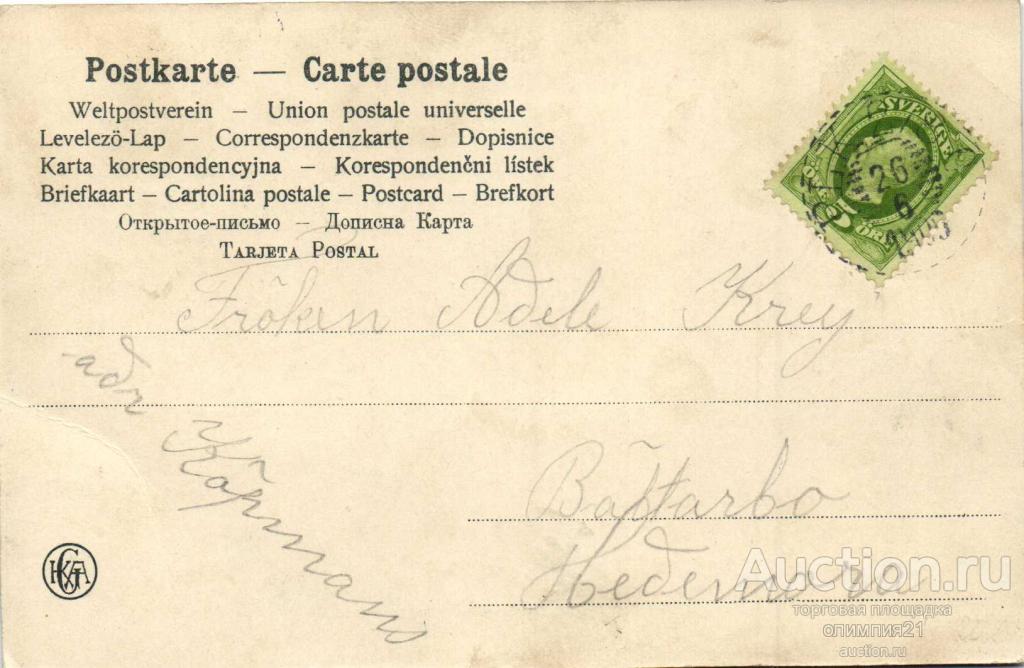 Postkarte — Carte postale
Weltpostverein – Union postale universelle
Levelező-Lap – Correspondenzkarte – Dopisnice
Karta korespondencyjna – Korespondenčni lístek
Briefkaart – Cartolina postale – Postcard – Brefkort
Открытое-письмо – Дописна Карта
Tarjeta Postal
SVERIGE
5 ÖRE
26
6
Fröken Adele Krey
adr Köpmans
Båttarbo
Hedemora
Auction.ru
торговая площадка
олимпия21
auction.ru